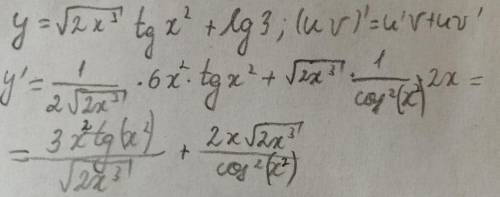 y = √(2x³) tg x² + lg 3 ; (u v)' = u'v + uv'
y' = 1/(2√(2x³)) · 6x² · tg x² + √(2x³) · 1/cos²(x²) · 2x =
= 3x² tg(x²)/√(2x³) + 2x√(2x³)/cos²(x²)